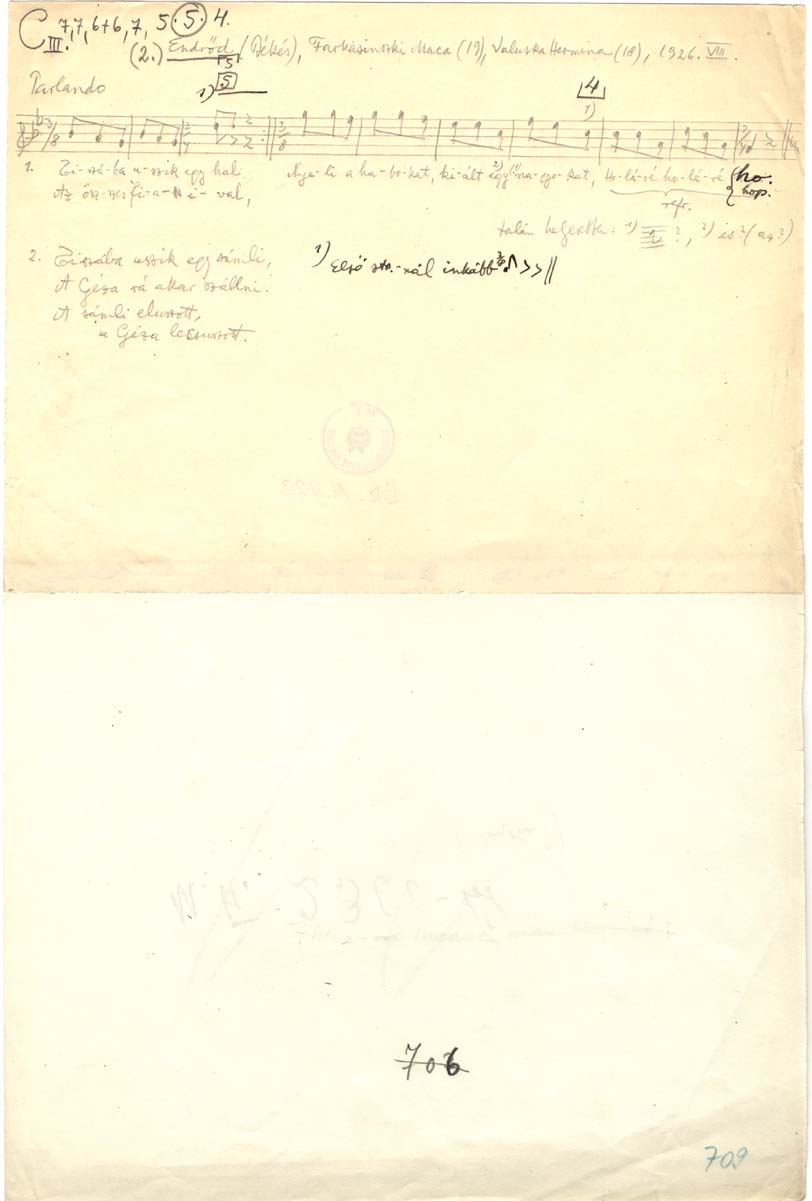 C III. 7, 7, 6+6, 7, 5 (5.) 4.
(2.) Endrőd (Békés), Farkasinszki Maca (19), Valuska Hermina (18), 1926. VIII.
Parlando 1) 5 4 1)
1. Ti-szá-ba u-szik egy hal. Nye-li a ha-bo-kat, ki-ált 2) egy na-gyo-kat, Ho-lá-ré ho-lá-ré ho.
Az ösz-szes fi-a-i-val, hop.
refr.
talán helyesebben: 1) ?, 2) is? (az?)
2. Tiszába uszik egy sámli,
A Géza rá akar szállni.
A sámli eluszott,
a Géza lecsuszott.
1) Első str.-nál inkább
706
709